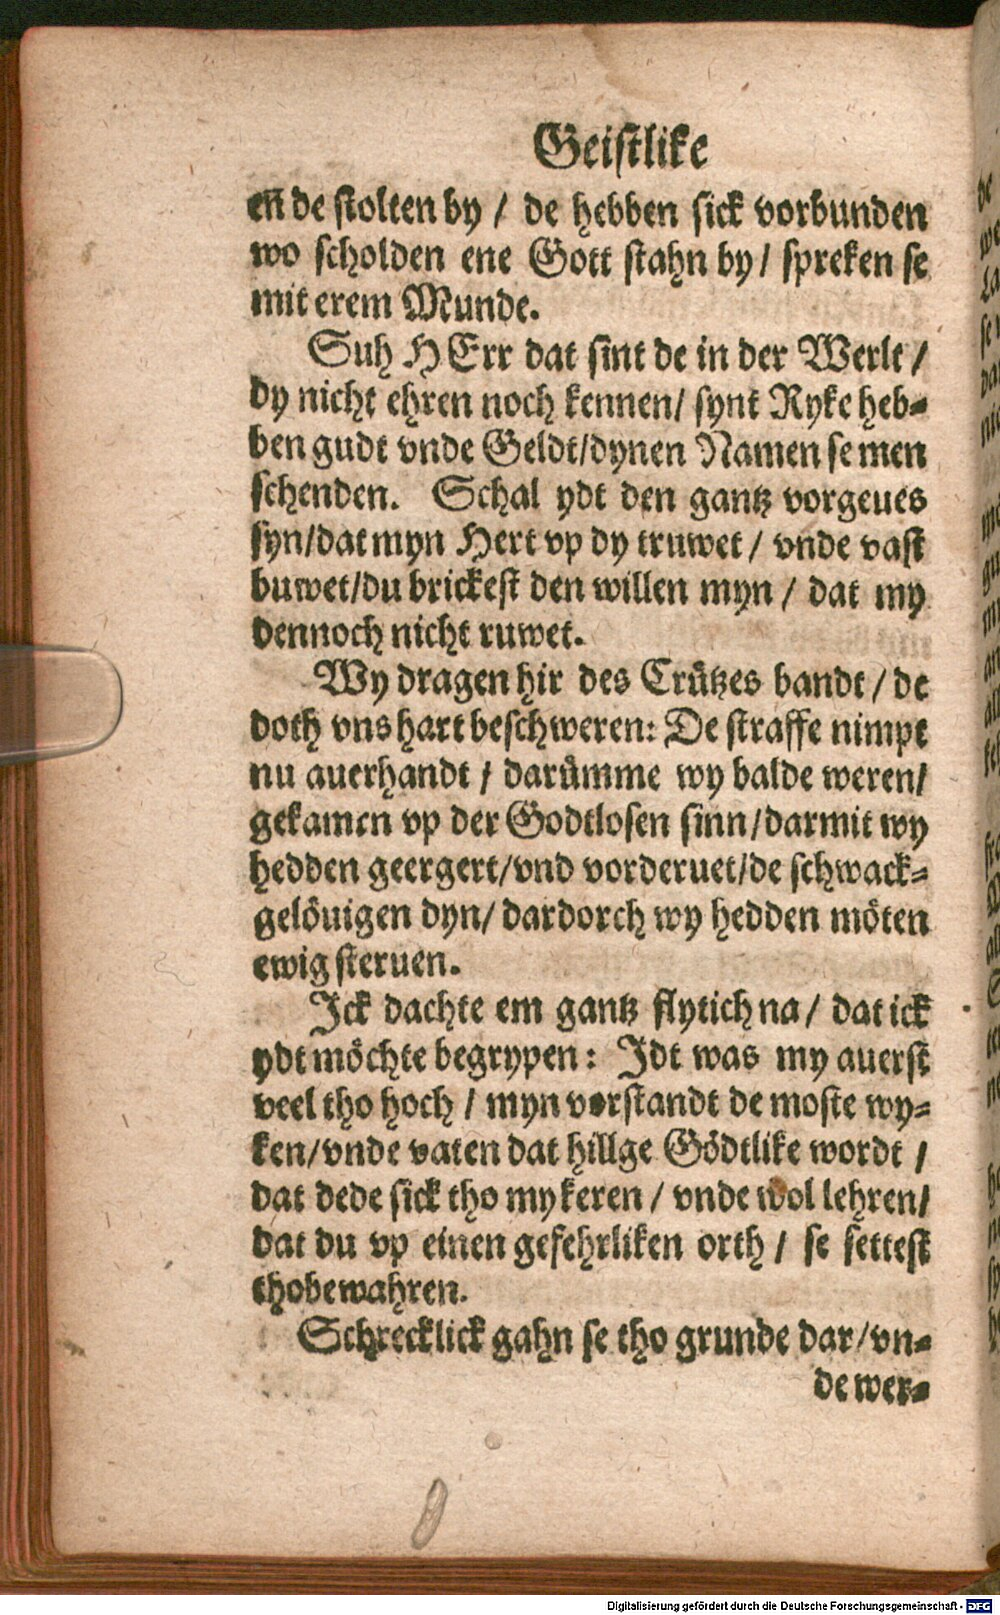 Geistlike
en̄ de stolten by / de hebben sick vorbunden
wo scholden ene Gott stahn by / spreken se
mit erem Munde.
Suh HErr dat sint de in der Werlt /
dy nicht ehren noch kennen/ synt Ryke heb-
ben gudt vnde Geldt/dynen Namen se men
schenden. Schal ydt den gantz vorgeues
syn/dat myn Hert vp dy truwet / vnde vast
buwet/du brickest den willen myn / dat my
dennoch nicht ruwet.
Wy dragen hir des Crützes bandt / de
doth vns hart beschweren: De straffe nimpt
nu auerhandt / darümme wy balde weren/
gekamen vp der Godtlosen sinn/darmit wy
hedden geergert/vnd vorderuet/de schwack-
gelöuigen dyn/ dardorch wy hedden möten
ewig steruen.
Ick dachte em gantz flytich na / dat ick
ydt möchte begrypen: Idt was my auerst
veel tho hoch / myn vorstandt de moste wy-
ken/vnde vaten dat hillge Gödtlike wordt /
dat dede sick tho my keren / vnde wol lehren/
dat du vp einen gefehrliken orth / se settest
tho bewahren.
Schrecklick gahn se tho grunde dar/vn-
de wer-
Digitalisierung gefördert durch die Deutsche Forschungsgemeinschaft - DFG